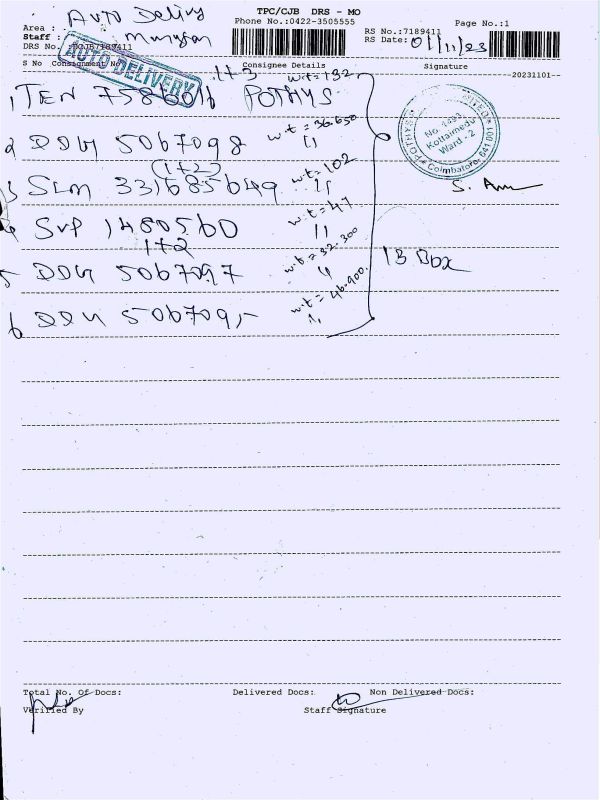 TPC/CJB DRS - MO
Area : Auto Delivy
Phone No.:0422-3505555
Page No.:1
Staff : Murugan
RS No.:7189411
DRS No. :DCJB7189411
RS Date: 01/11/23
AUTO DELIVERY
S No Consignment No
Consignee Details
Signature
--20231101--
1+3 w.t=132
1 TEN 7586016 POTHYS
2 DDG 5067098 w.t=36.650 "
(1+2)
3 SLM 331685649 w.t=102 "
4 SVP 1480560 w.t=47 "
1+2
5 DDG 5067097 w.t=32.300 "
6 DDG 5067095 w.t=46.900 "
13 Box
POTHYS
No. 1493
Kottaimedu
Ward - 2
Coimbatore
Total No. Of Docs:
Delivered Docs:
Non Delivered Docs:
Verified By
Staff Signature